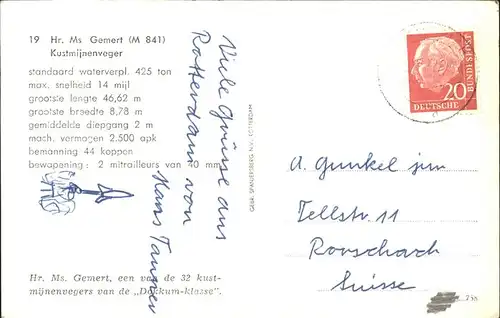 19 Hr. Ms Gemert (M 841)
Kustmijnenveger
standaard waterverpl. 425 ton
max. snelheid 14 mijl
grootste lengte 46,62 m
grootste breedte 8,78 m
gemiddelde diepgang 2 m
mach. vermogen 2.500 apk
bemanning 44 koppen
bewapening : 2 mitrailleurs van 40 mm
Hr. Ms. Gemert, een van de 32 kust-
mijnenvegers van de „Dokkum-klasse".
Viele Grüsse aus
Rotterdam von
Hans
GEBR. SPANJERSBERG N.V., ROTTERDAM
20
DEUTSCHE
BUNDESPOST
A. Gunkel jun
Tellstr. 11
Rorschach
Suisse